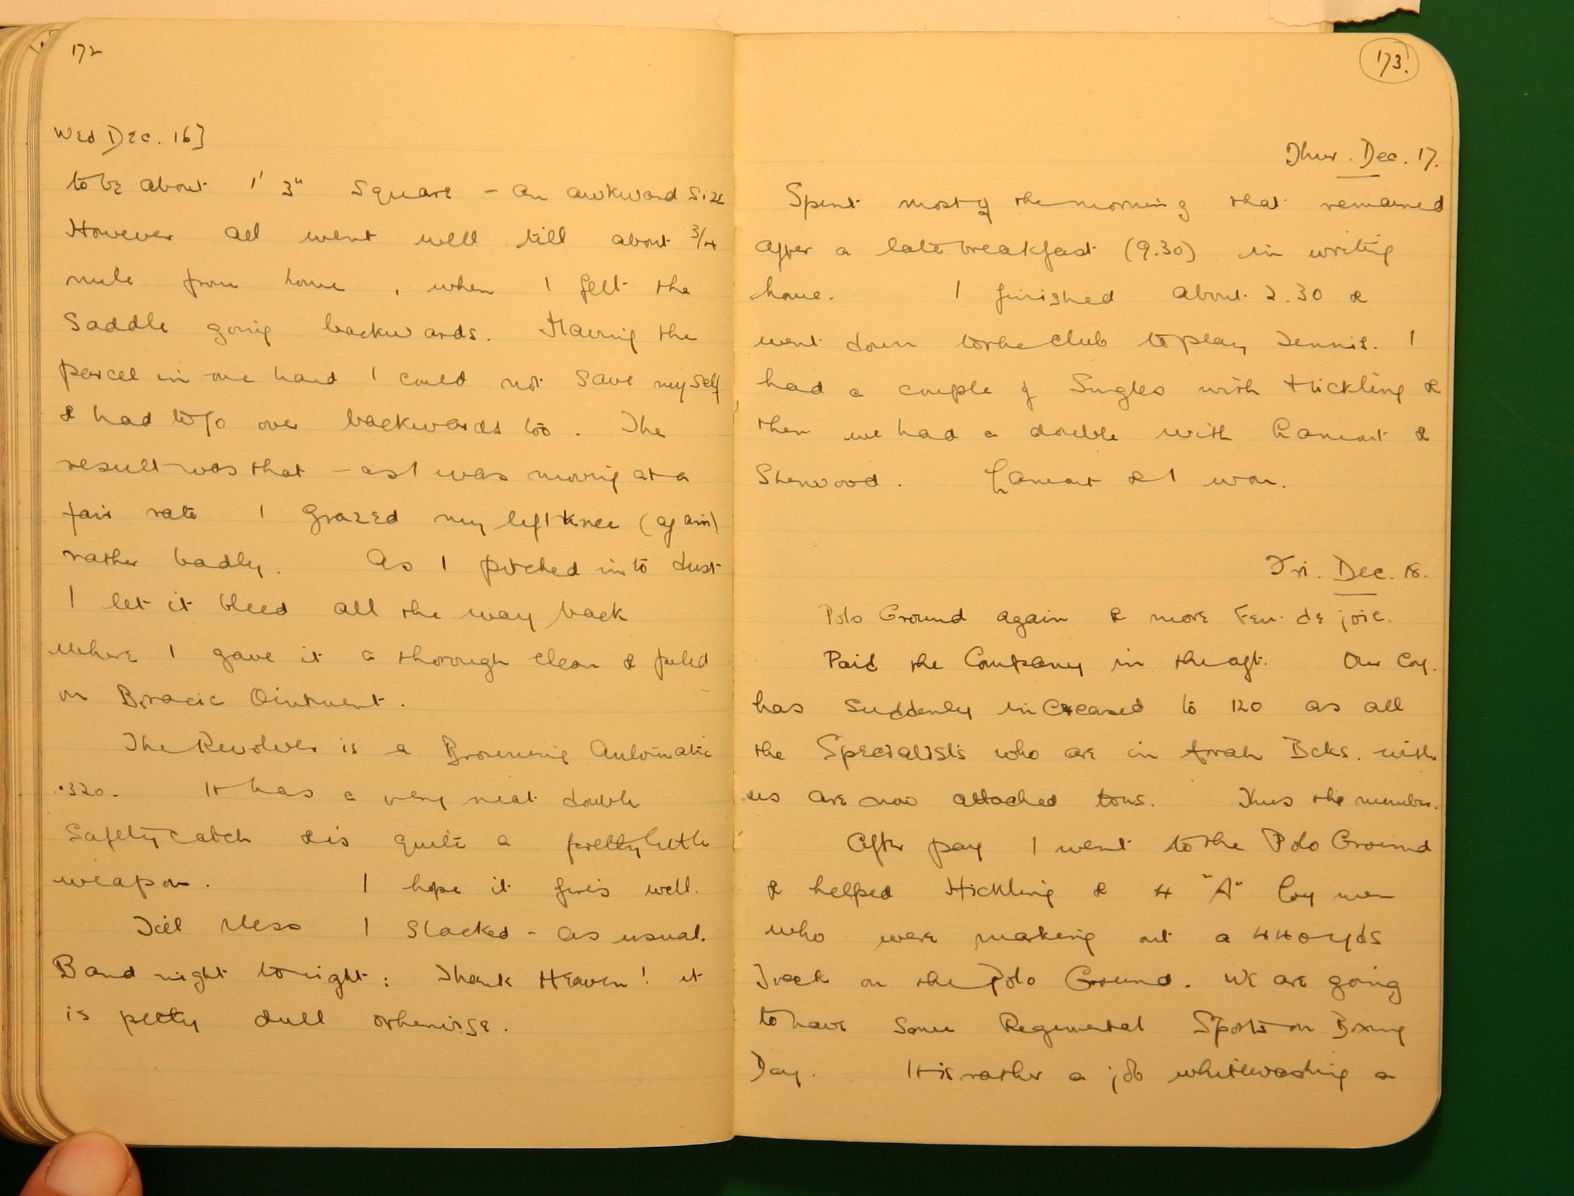 172
Wed Dec. 16]
to be about 1' 3" square – an awkward size
However all went well till about 3/4
mile from home, when I felt the
saddle going backwards. Having the
parcel in one hand I could not save myself
& had to go over backwards too. The
result was that – as I was moving at a
fair rate I grazed my left knee (again)
rather badly. As I pitched into dust
I let it bleed all the way back
where I gave it a thorough clean & puled
on Boracic Ointment.
The Revolver is a Browning Automatic
.320. It has a very neat double
safety catch & is quite a pretty little
weapon. I hope it fires well.
Till Mess I slacked – as usual.
Band night tonight: Thank Heaven! it
is pretty dull otherwise.
173.
Thur. Dec. 17.
Spent most of the morning that remained
after a late breakfast (9.30) in writing
home. I finished about 2.30 &
went down to the club to play Tennis. I
had a couple of Singles with Hickling &
then we had a double with Lamont &
Sherwood. Lamont & I won.
Fri. Dec. 18.
Polo Ground again & more Feu de joie.
Paid the Company in the aft. Our Coy.
has suddenly increased to 120 as all
the Specialists who are in Bcks. with
us are now attached to us. Thus the number.
After pay I went to the Polo Ground
& helped Hickling & 4 "A" Coy men
who were marking out a 440 yds
Track on the Polo Ground. We are going
to have some Regimental Sports on Boxing
Day. It is rather a job whitewashing a